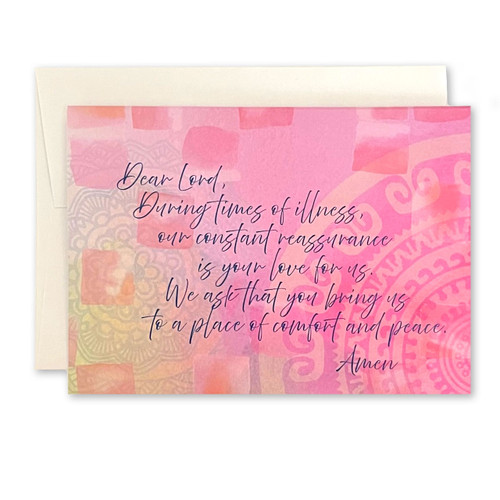 Dear Lord,
During times of illness,
our constant reassurance
is your love for us.
We ask that you bring us
to a place of comfort and peace.
Amen